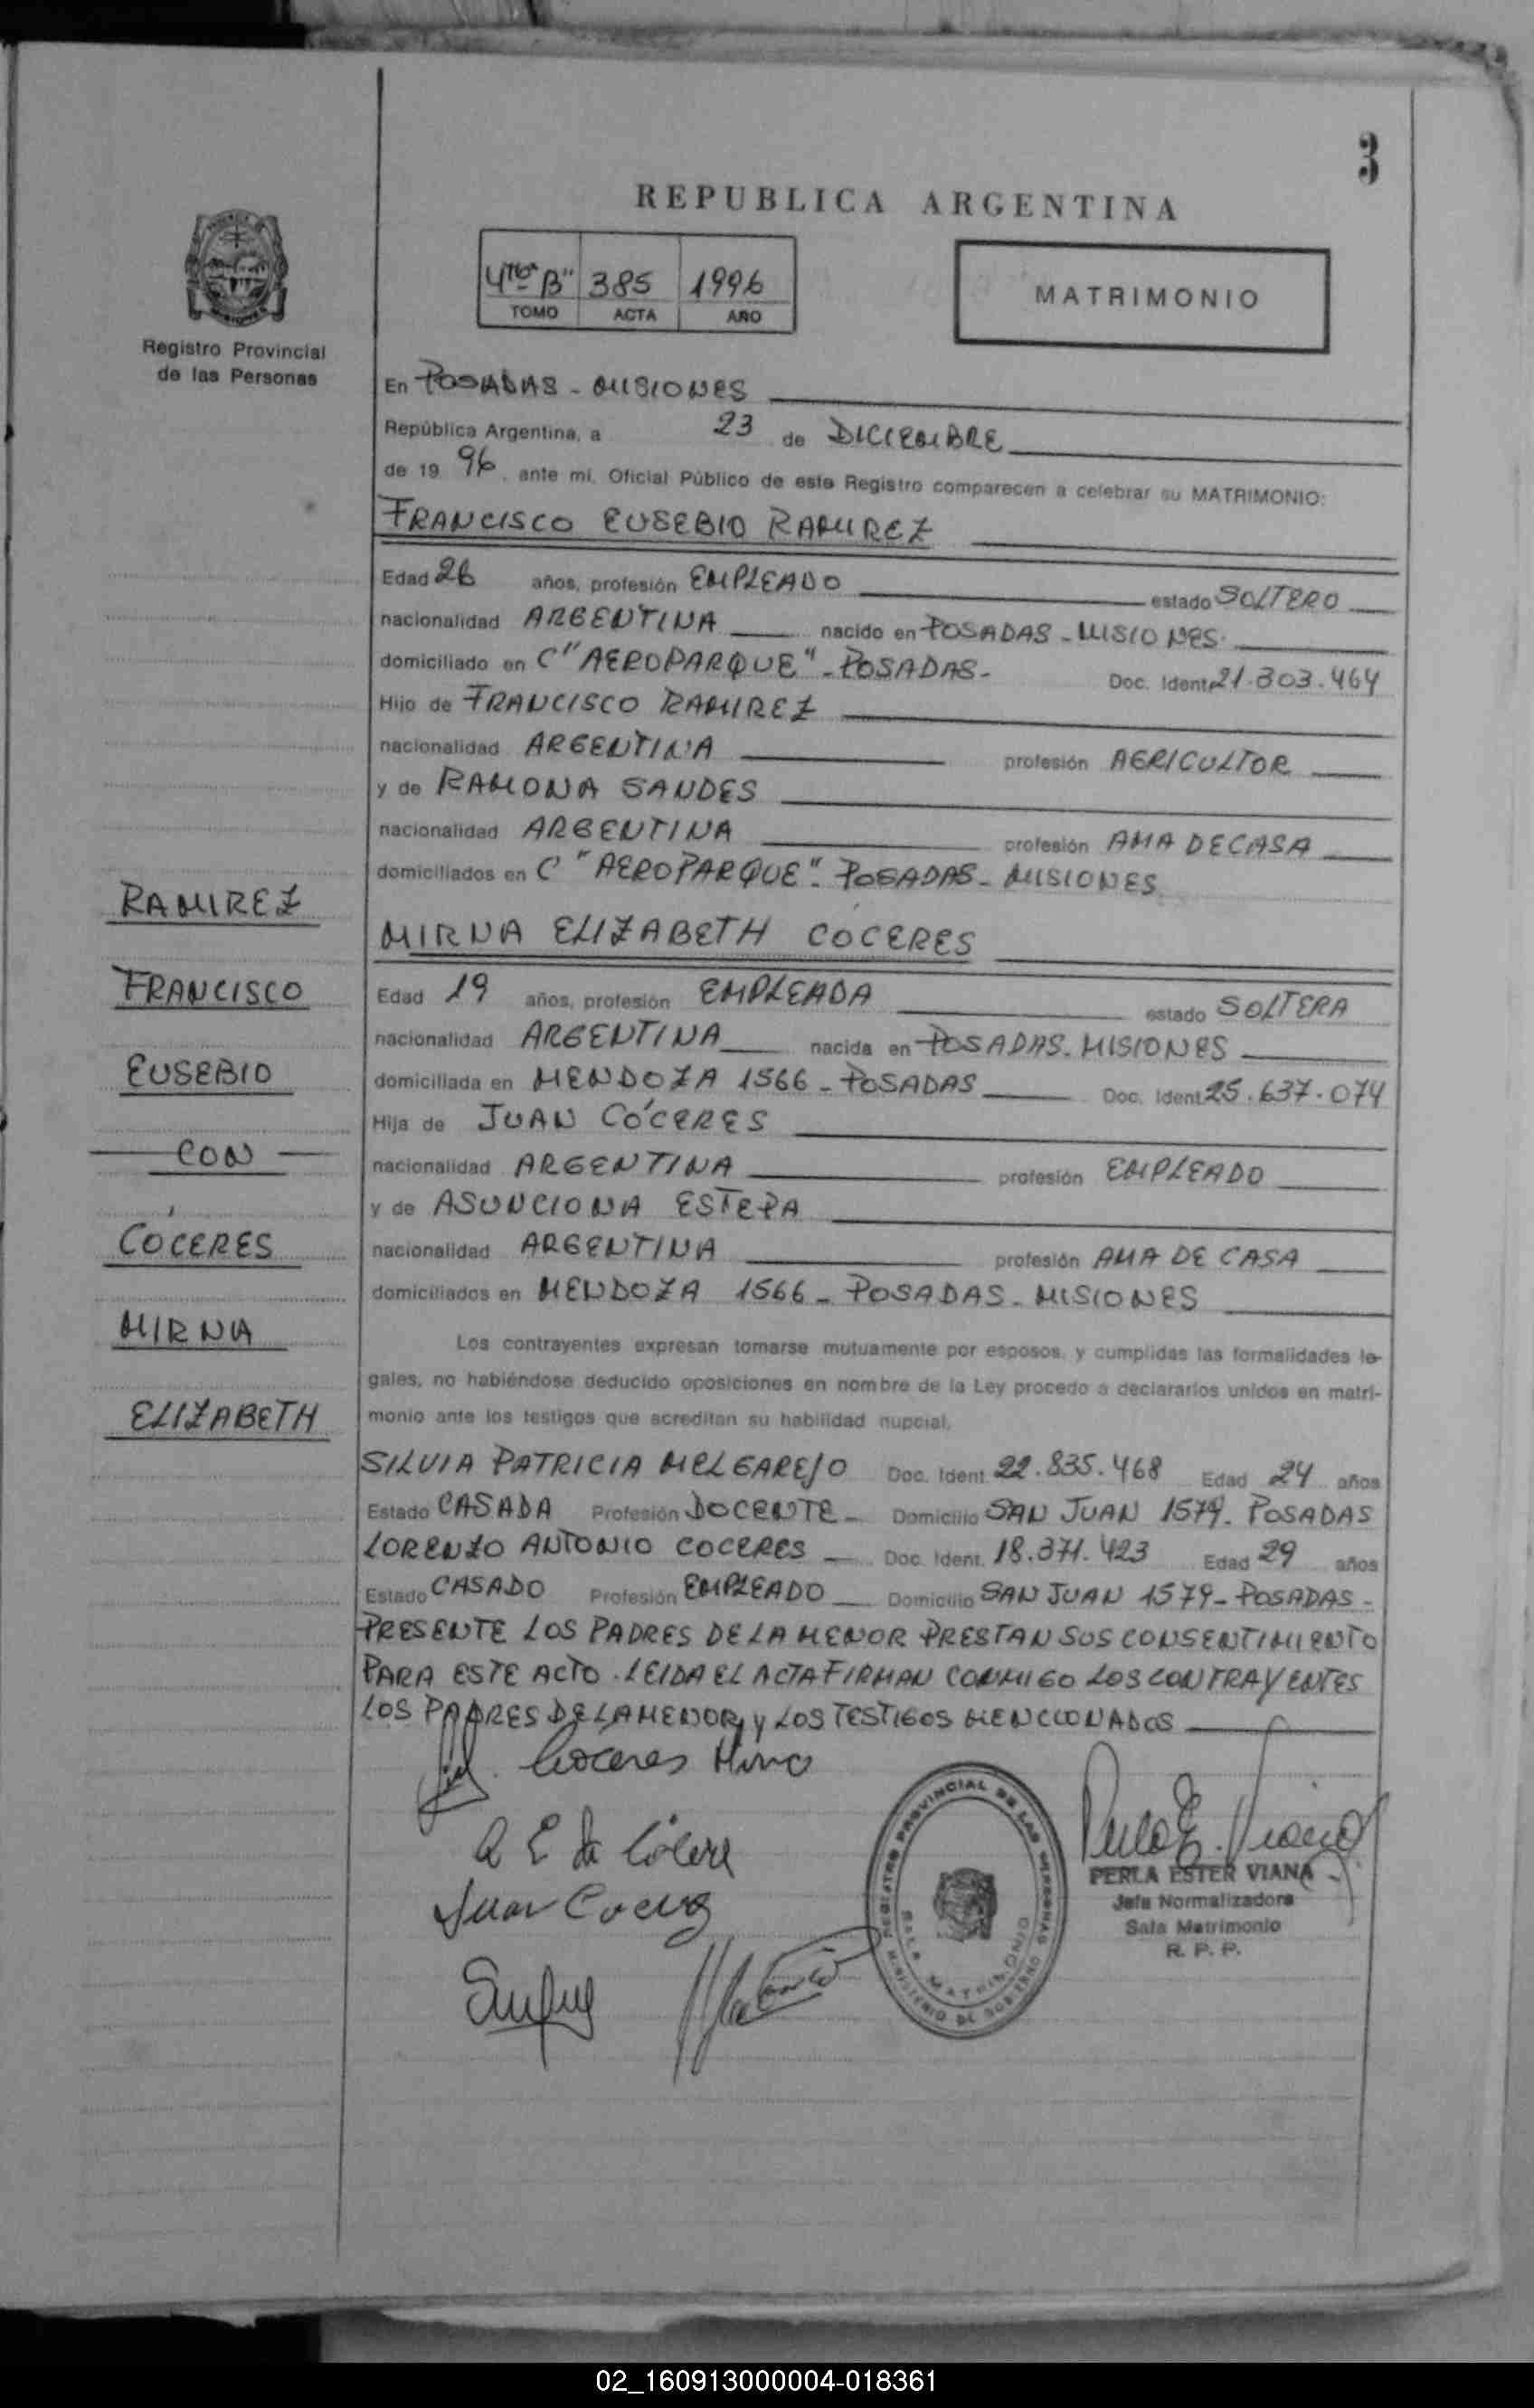 3
REPUBLICA ARGENTINA
4to "B" 385 1996
TOMO ACTA AÑO
MATRIMONIO
Registro Provincial
de las Personas
En POSADAS - MISIONES
República Argentina, a 23 de DICIEMBRE
de 19 96, ante mi, Oficial Público de este Registro comparecen a celebrar su MATRIMONIO:
FRANCISCO EUSEBIO RAMIREZ
Edad 26 años, profesión EMPLEADO estado SOLTERO
nacionalidad ARGENTINA nacido en POSADAS - MISIONES.
domiciliado en C "AEROPARQUE" - POSADAS - Doc. Ident. 21.303.464
Hijo de FRANCISCO RAMIREZ
nacionalidad ARGENTINA profesión AGRICULTOR
y de RAMONA SANDES
nacionalidad ARGENTINA profesión AMA DE CASA
domiciliados en C "AEROPARQUE". POSADAS - MISIONES
MIRNA ELIZABETH COCERES
Edad 19 años, profesión EMPLEADA estado SOLTERA
nacionalidad ARGENTINA nacida en POSADAS. MISIONES
domiciliada en MENDOZA 1566 - POSADAS Doc. Ident. 25.637.074
Hija de JUAN CÓCERES
nacionalidad ARGENTINA profesión EMPLEADO
y de ASUNCIONA ESTEPA
nacionalidad ARGENTINA profesión AMA DE CASA
domiciliados en MENDOZA 1566 - POSADAS - MISIONES
Los contrayentes expresan tomarse mutuamente por esposos, y cumplidas las formalidades le-
gales, no habiéndose deducido oposiciones en nombre de la Ley procedo a declararlos unidos en matri-
monio ante los testigos que acreditan su habilidad nupcial.
SILVIA PATRICIA MELGAREJO Doc. Ident. 22.835.468 Edad 24 años
Estado CASADA Profesión DOCENTE - Domicilio SAN JUAN 1579 - POSADAS
LORENZO ANTONIO COCERES Doc. Ident. 18.371.423 Edad 29 años
Estado CASADO Profesión EMPLEADO Domicilio SAN JUAN 1579 - POSADAS -
PRESENTE LOS PADRES DE LA MENOR PRESTAN SUS CONSENTIMIENTO
PARA ESTE ACTO. LEIDA EL ACTA FIRMAN CONMIGO LOS CONTRAYENTES
LOS PADRES DE LA MENOR, y LOS TESTIGOS MENCCIONADOS
RAMIREZ
FRANCISCO
EUSEBIO
CON
CÓCERES
MIRNA
ELIZABETH
Coceres Mirna
Juan Coceres
REGISTRO PROVINCIAL DE LAS PERSONAS
SALA MATRIMONIO
MINISTERIO DE GOBIERNO
Perla E. Viana
PERLA ESTER VIANA
Jefa Normalizadora
Sala Matrimonio
R. P. P.
02_160913000004-018361